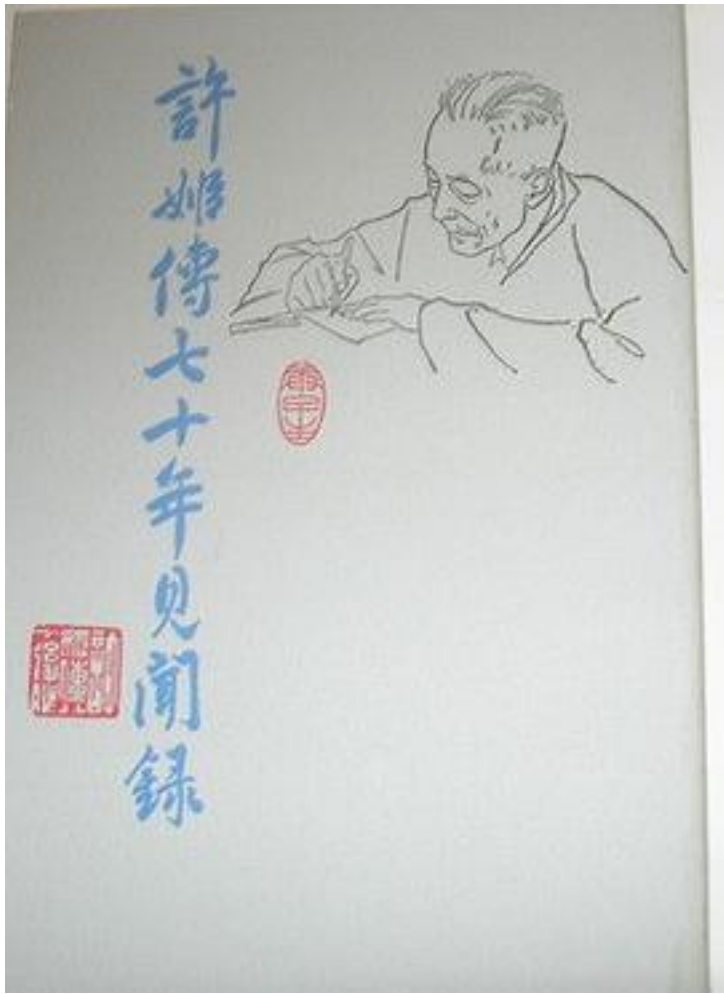 許姬傳七十年見聞録